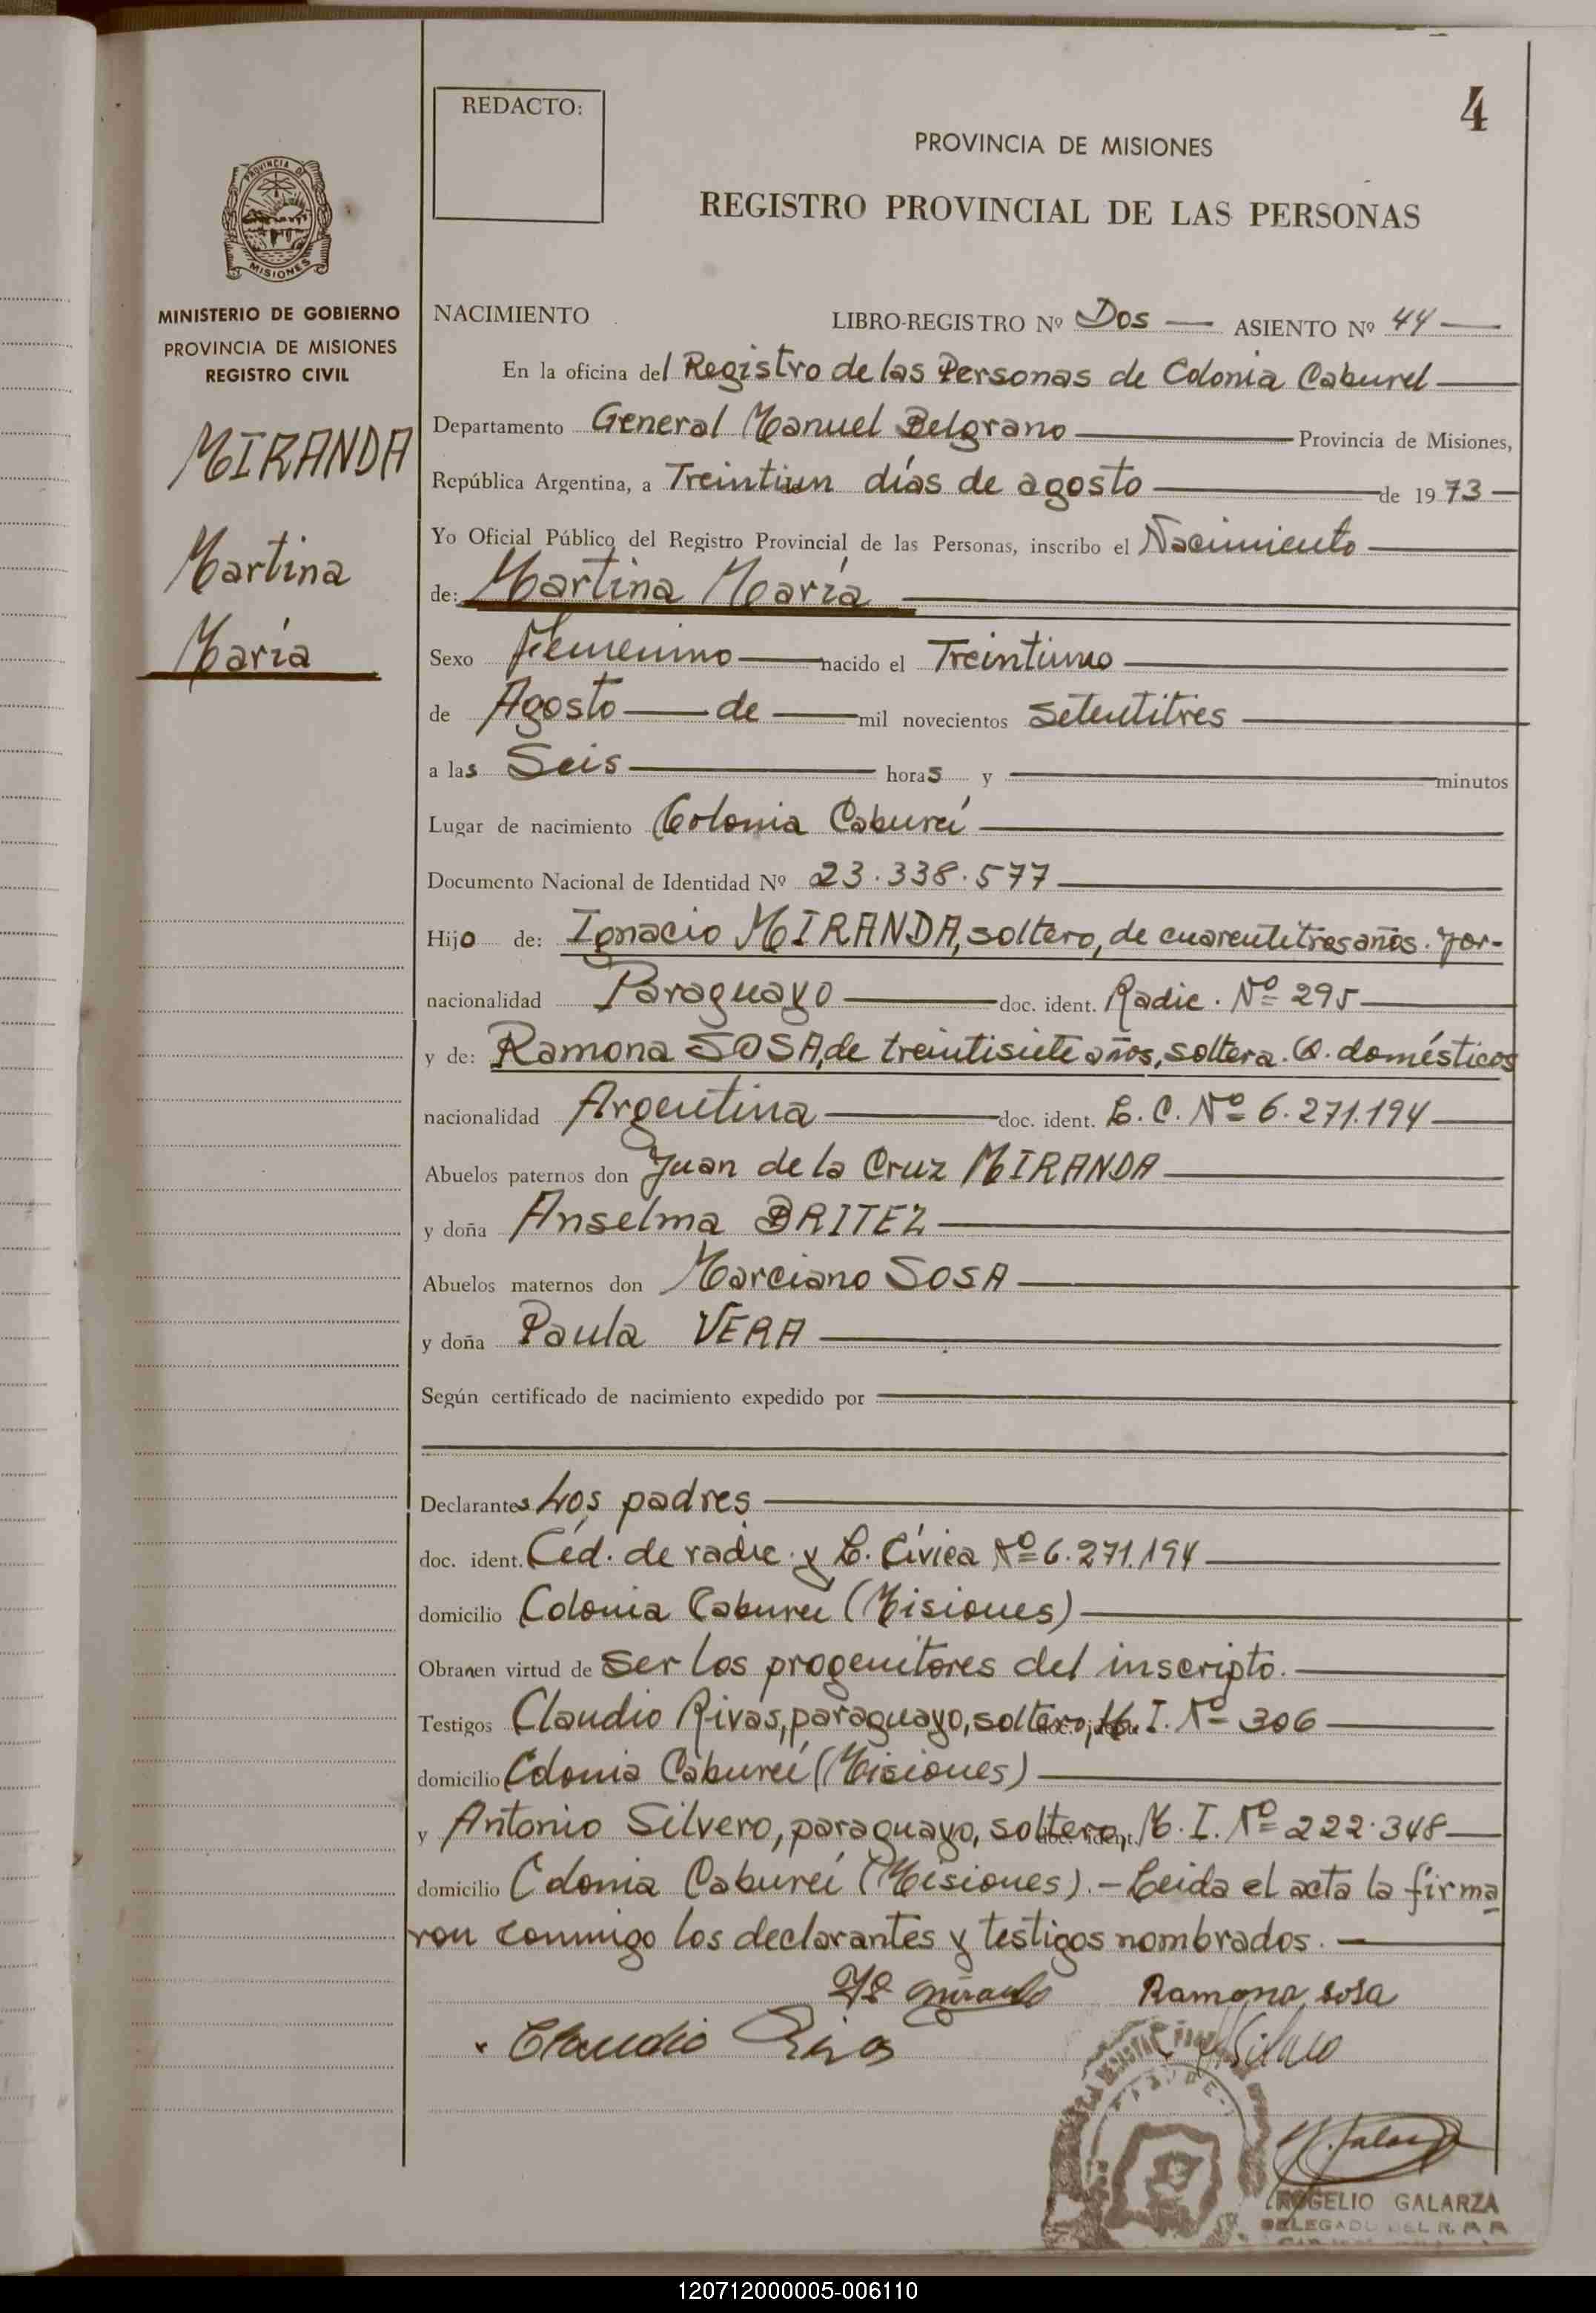 4
REDACTO:
PROVINCIA DE MISIONES
REGISTRO PROVINCIAL DE LAS PERSONAS
PROVINCIA DE
MISIONES
MINISTERIO DE GOBIERNO
PROVINCIA DE MISIONES
REGISTRO CIVIL
MIRANDA
Martina
María
NACIMIENTO LIBRO-REGISTRO Nº Dos — ASIENTO Nº 44 —
En la oficina del Registro de las Personas de Colonia Caburel
Departamento General Manuel Belgrano Provincia de Misiones,
República Argentina, a Treintiun días de agosto de 1973 —
Yo Oficial Público del Registro Provincial de las Personas, inscribo el Nacimiento
de: Martina María
Sexo Femenino — nacido el Treintiuno
de Agosto — de — mil novecientos setentitres
a las Seis horas y minutos
Lugar de nacimiento Colonia Cabureí
Documento Nacional de Identidad Nº 23.338.577
Hijo de: Ignacio MIRANDA, soltero, de cuarentitres años. Jor-
nacionalidad Paraguayo doc. ident. Radic. Nº 295
y de: Ramona SOSA, de treintisiete años, soltera. Q. domésticos
nacionalidad Argentina doc. ident. L. C. Nº 6.271.194
Abuelos paternos don Juan de la Cruz MIRANDA
y doña Anselma BRITEZ
Abuelos maternos don Marciano SOSA
y doña Paula VERA
Según certificado de nacimiento expedido por
Declarantes Los padres
doc. ident. Céd. de radic. y L. Cívica Nº 6.271.194
domicilio Colonia Cabureí (Misiones)
Obranen virtud de ser los progenitores del inscripto.
Testigos Claudio Rivas, paraguayo, soltero, M. I. Nº 306
domicilio Colonia Cabureí (Misiones)
y Antonio Silvero, paraguayo, soltero, doc. ident. M. I. Nº 222.348
domicilio Colonia Cabureí (Misiones). – Leida el acta la firma
ron conmigo los declarantes y testigos nombrados. —
Ramona Sosa
Claudio Rivas
ROGELIO GALARZA
DELEGADO DEL R.
120712000005-006110